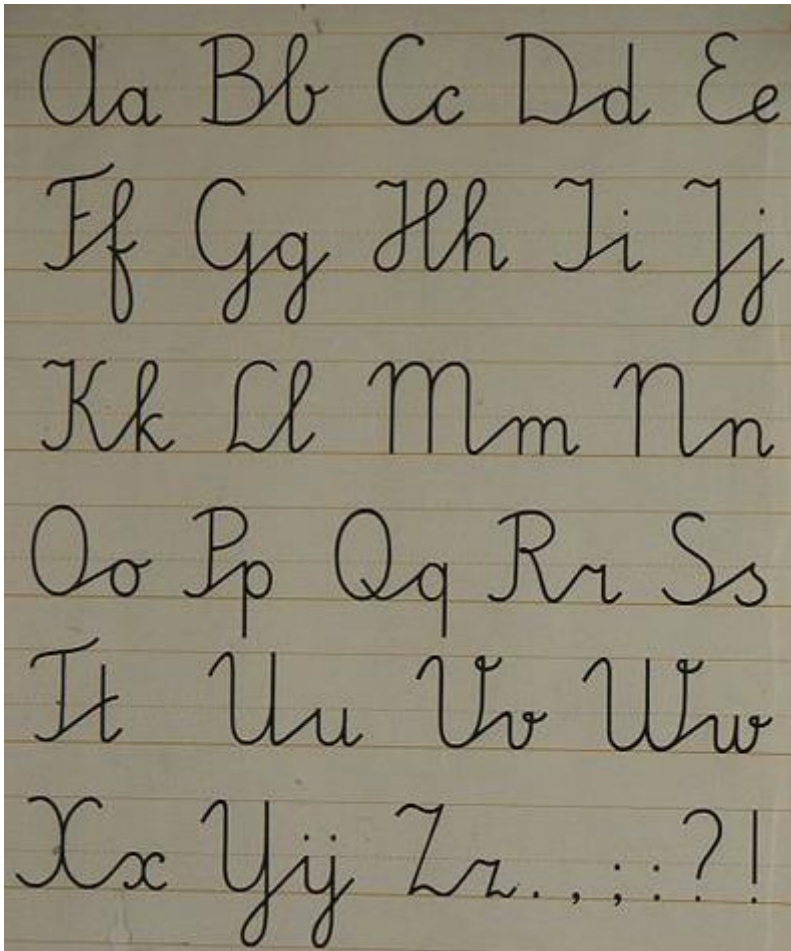 Aa Bb Cc Dd Ee
Ff Gg Hh Ii Jj
Kk Ll Mm Nn
Oo Pp Qq Rr Ss
Tt Uu Vv Ww
Xx Yÿ Zz . , ; : ? !